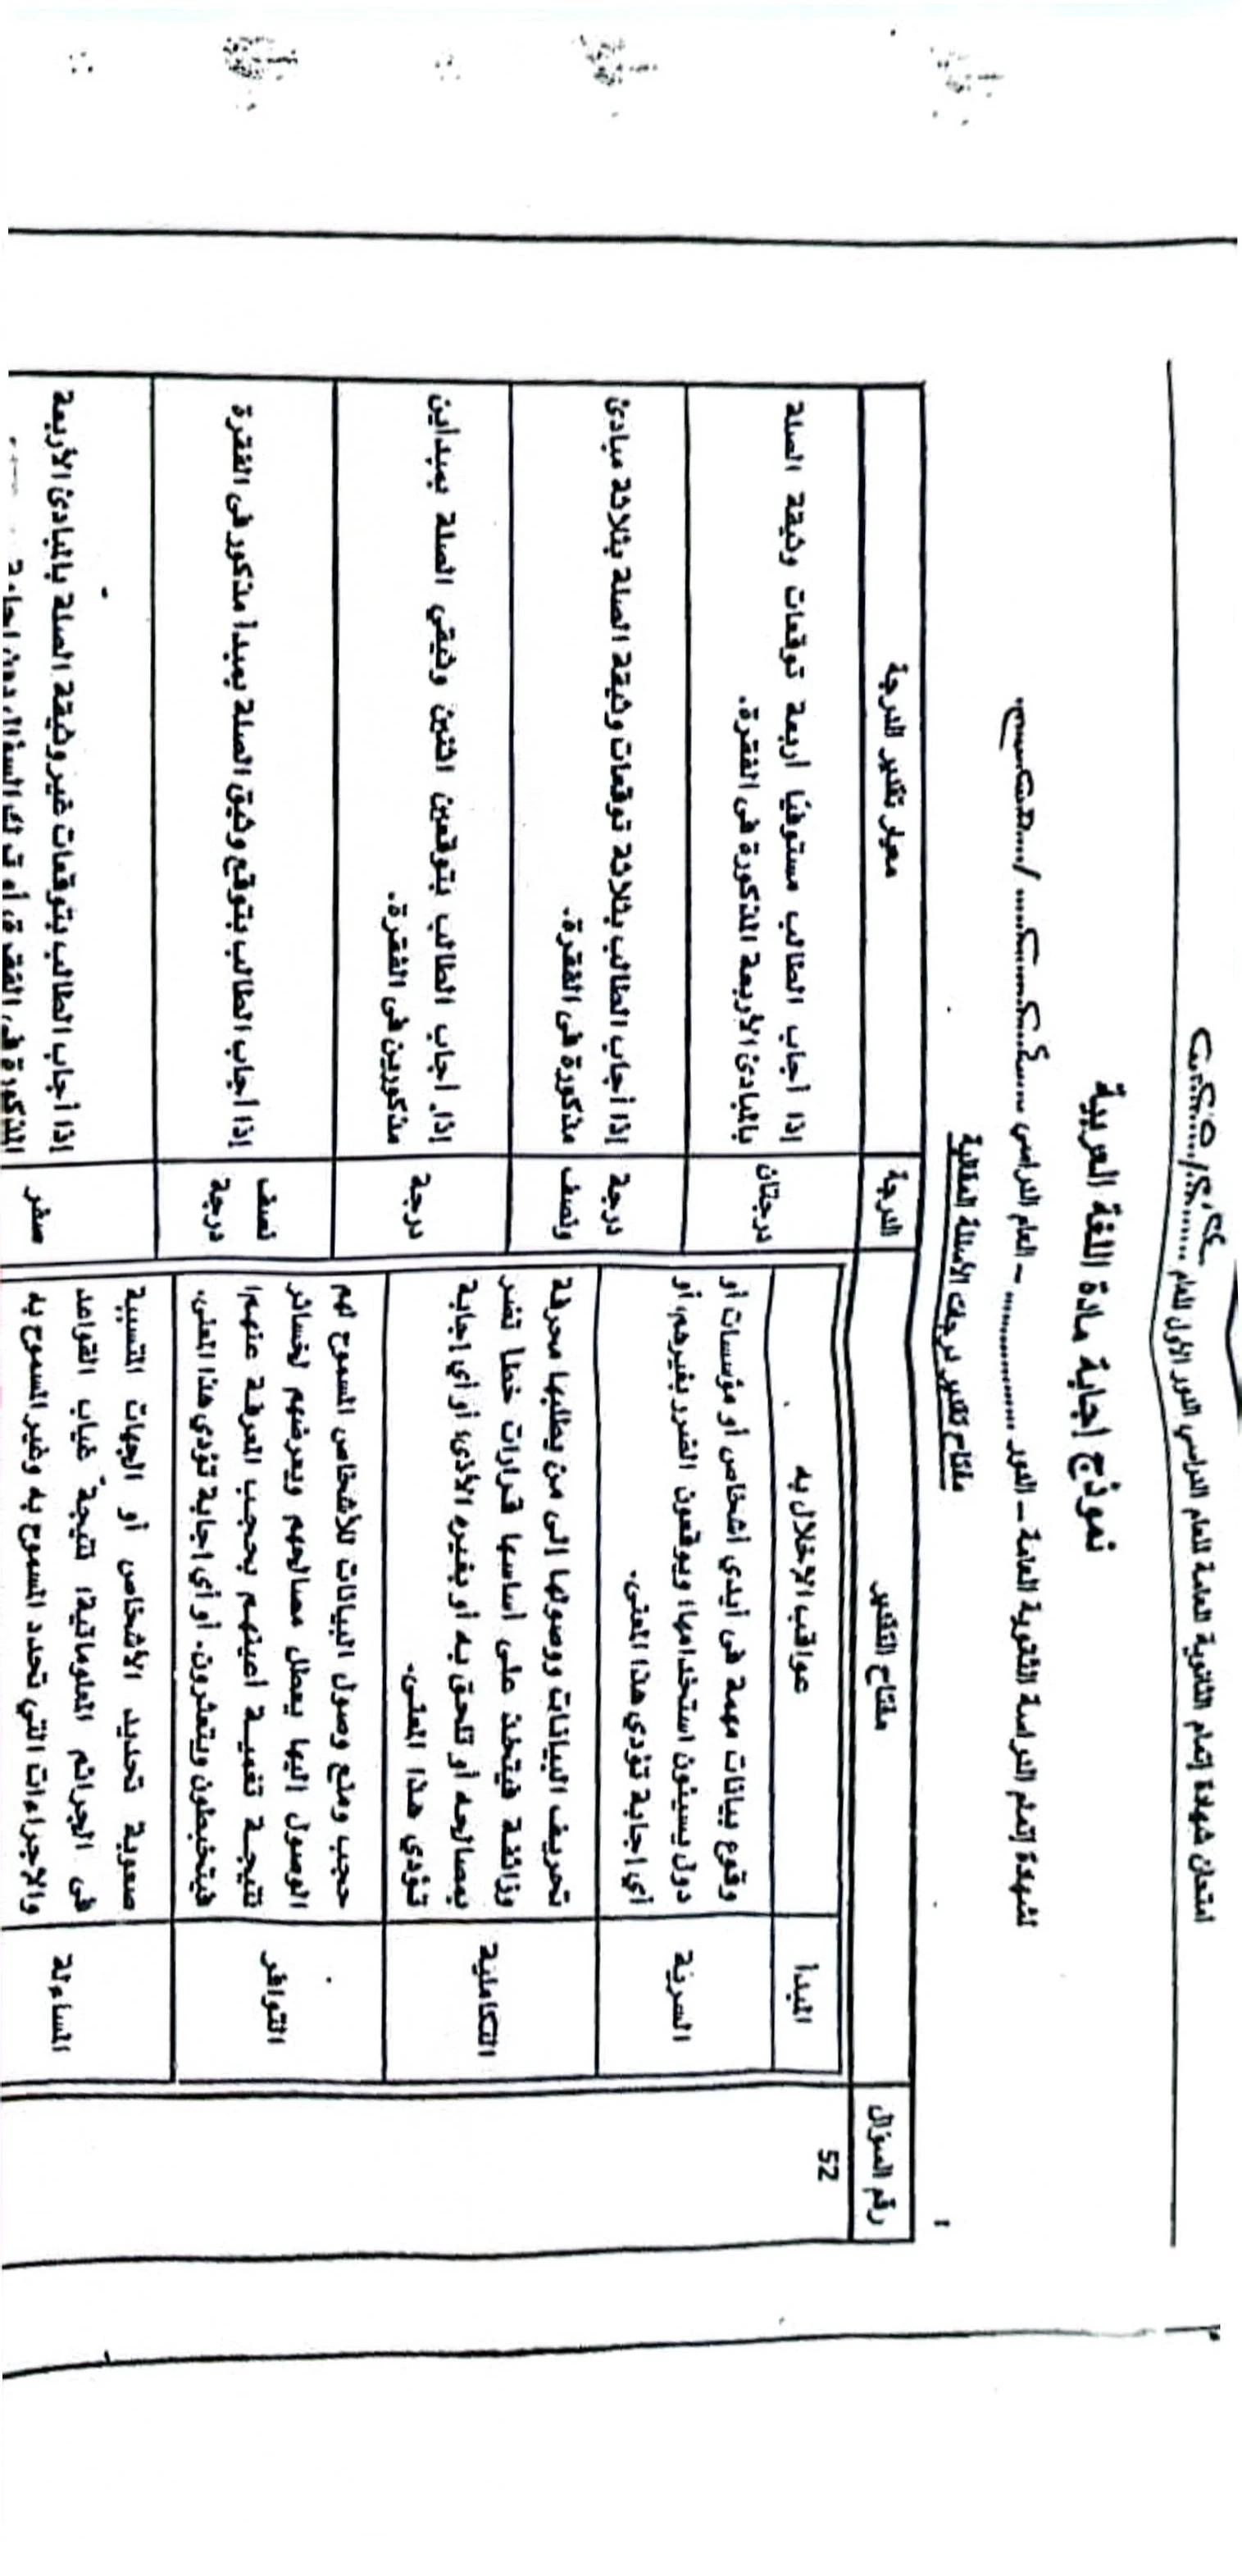 امتحان شهادة إتمام الثانوية العامة للعام الدراسي الدور الأول للعام
نموذج إجابة مادة اللغة العربية
لشهادة إتمام الدراسة الثانوية العامة – الدور ........... – العام الدراسي
مفتاح تقدير درجات الأسئلة المقالية
رقم السؤال
مفتاح التقدير
الدرجة
معيار تقدير الدرجة
52
المبدأ
عواقب الإخلال به
السرية
وقوع بيانات مهمة في أيدي أشخاص أو مؤسسات أو
دول يسيئون استخدامها، ويوقعون الضرر بغيرهم، أو
أي إجابة تؤدي هذا المعنى.
التكاملية
تحريف البيانات ووصولها إلى من يطلبها محرفة
وزائفة فيتخذ على أساسها قرارات خطأ تضر
بمصالحه أو تلحق به أو بغيره الأذى، أو أي إجابة
تؤدي هذا المعنى.
التوافر
حجب ومنع وصول البيانات للأشخاص المسموح لهم
الوصول إليها يعطل مصالحهم ويعرضهم لخسائر
نتيجة تغمية أعينهم بحجب المعرفة عنهم؛
فيتخبطون ويتعثرون. أو أي إجابة تؤدي هذا المعنى.
المساءلة
صعوبة تحديد الأشخاص أو الجهات المتسببة
في الجرائم المعلوماتية؛ نتيجة غياب القواعد
والإجراءات التي تحدد المسموح به وغير المسموح به
درجتان
إذا أجاب الطالب مستوفيًا أربعة توقعات وثيقة الصلة
بالمبادئ الأربعة المذكورة في الفقرة.
درجة
ونصف
إذا أجاب الطالب بثلاثة توقعات وثيقة الصلة بثلاثة مبادئ
مذكورة في الفقرة.
درجة
إذا. أجاب الطالب بتوقعين اثنين وثيقي الصلة بمبدأين
مذكورين في الفقرة.
نصف
درجة
إذا أجاب الطالب بتوقع وثيق الصلة بمبدأ مذكور في الفقرة
صفر
إذا أجاب الطالب بتوقعات غير وثيقة الصلة بالمبادئ الأربعة
المذكورة في الفقرة، أو ترك السؤال دون إجابة